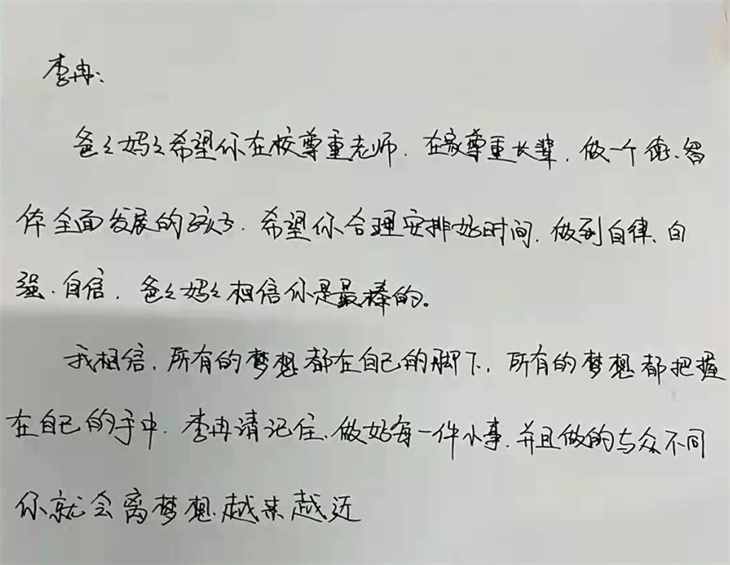 李冉：
爸々妈々希望你在校尊重老师．在家尊重长辈．做一个德、智
体全面发展的孩子．希望你合理安排好时间．做到自律、自
强、自信．爸々妈々相信你是最棒的。
我相信，所有的梦想都在自己的脚下，所有的梦想都把握
在自己的手中．李冉请记住、做好每一件小事．并且做的与众不同
你就会离梦想越来越近